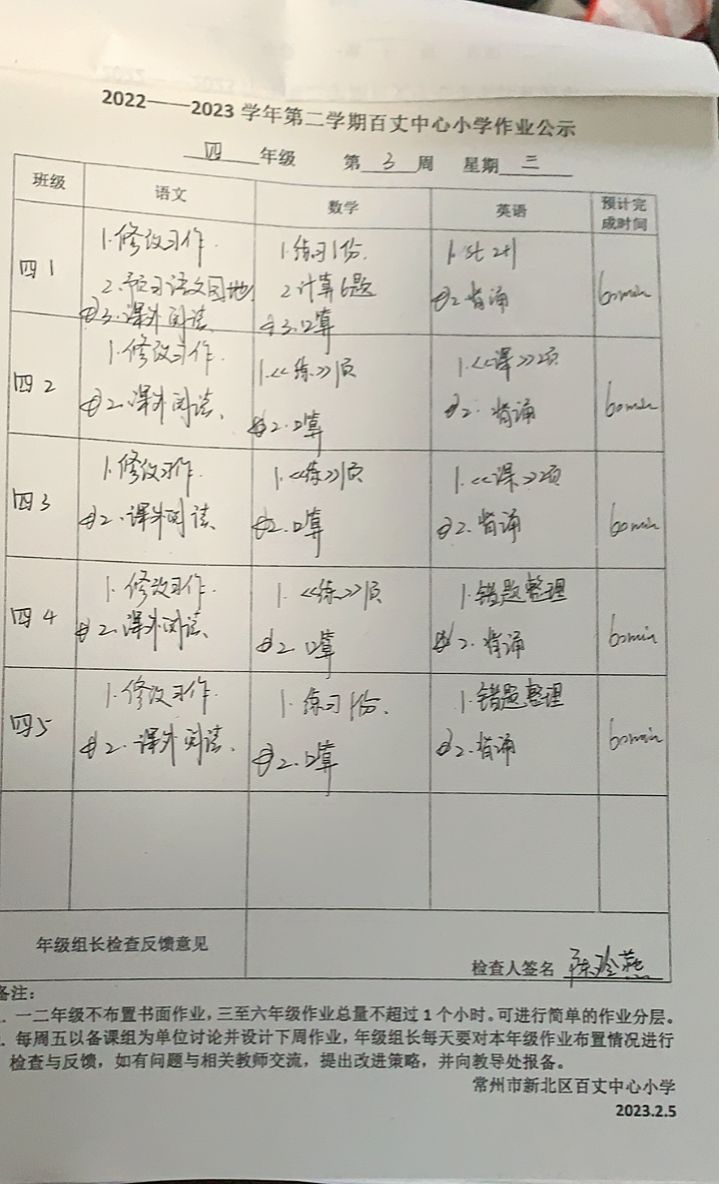 2022——2023 学年第二学期百丈中心小学作业公示
四 年级 第 3 周 星期 三
班级 语文 数学 英语 预计完成时间
四 1
1. 修改习作.
2. 预习语文园地
3. 课外阅读
1. 练习1份.
2. 计算6题
3. 口算
1.
2. 背诵
60min
四 2
1. 修改习作.
2. 课外阅读、
1. <<练>>1页
2. 口算
1. <<课>>2页
2. 背诵
60min
四 3
1. 修改习作.
2. 课外阅读、
1. <<练>>1页
2. 口算
1. <<课>>2页
2. 背诵
60min
四 4
1. 修改习作.
2. 课外阅读、
1. <<练>>1页
2. 口算
1. 错题整理
2. 背诵
60min
四 5
1. 修改习作.
2. 课外阅读、
1. 练习1份.
2. 口算
1. 错题整理
2. 背诵
60min
年级组长检查反馈意见
检查人签名 陈玲燕
备注:
. 一二年级不布置书面作业，三至六年级作业总量不超过 1 个小时。可进行简单的作业分层。
. 每周五以备课组为单位讨论并设计下周作业，年级组长每天要对本年级作业布置情况进行
检查与反馈，如有问题与相关教师交流，提出改进策略，并向教导处报备。
常州市新北区百丈中心小学
2023.2.5